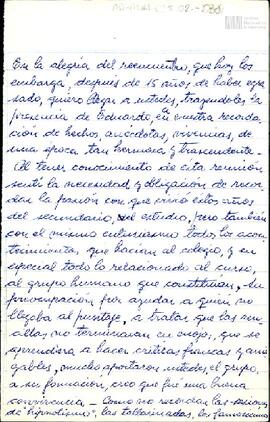 En la alegría del reencuentro, que hoy los
embarga, después de 15 años de haber egre-
sado, quiero llegar a ustedes, trayendoles la
presencia de Eduardo, en vuestra recorda-
ción de hechos, anécdotas, vivencias, de
una época tan hermosa y trascendente.-
Al tener conocimiento de esta reunión
sentí la necesidad y obligación de recor-
dar la pasión con que vivió estos años
del secundario, del estudio, pero también
con el mismo entusiasmo todos los acon-
tecimientos que hacían al colegio, y en
especial todo lo relacionado al curso,
al grupo humano que constituían, su
preocupación por ayudar a quien no
llegaba al puntaje, a tratar que los
no terminaran en enojo, que se
aprendiera a hacer críticas francas y ami-
gables, mucho aportaron ustedes, el grupo,
a su formación, creo que fué una buena
convivencia.- Como no recordar las sesiones
de "hipnotismo", las las famosísimas